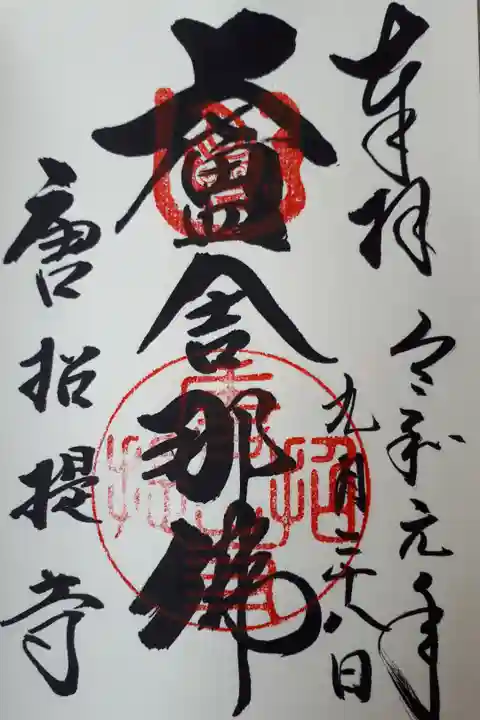 奉拝
令和元年
九月二十八日
盧舎那佛
唐招提寺